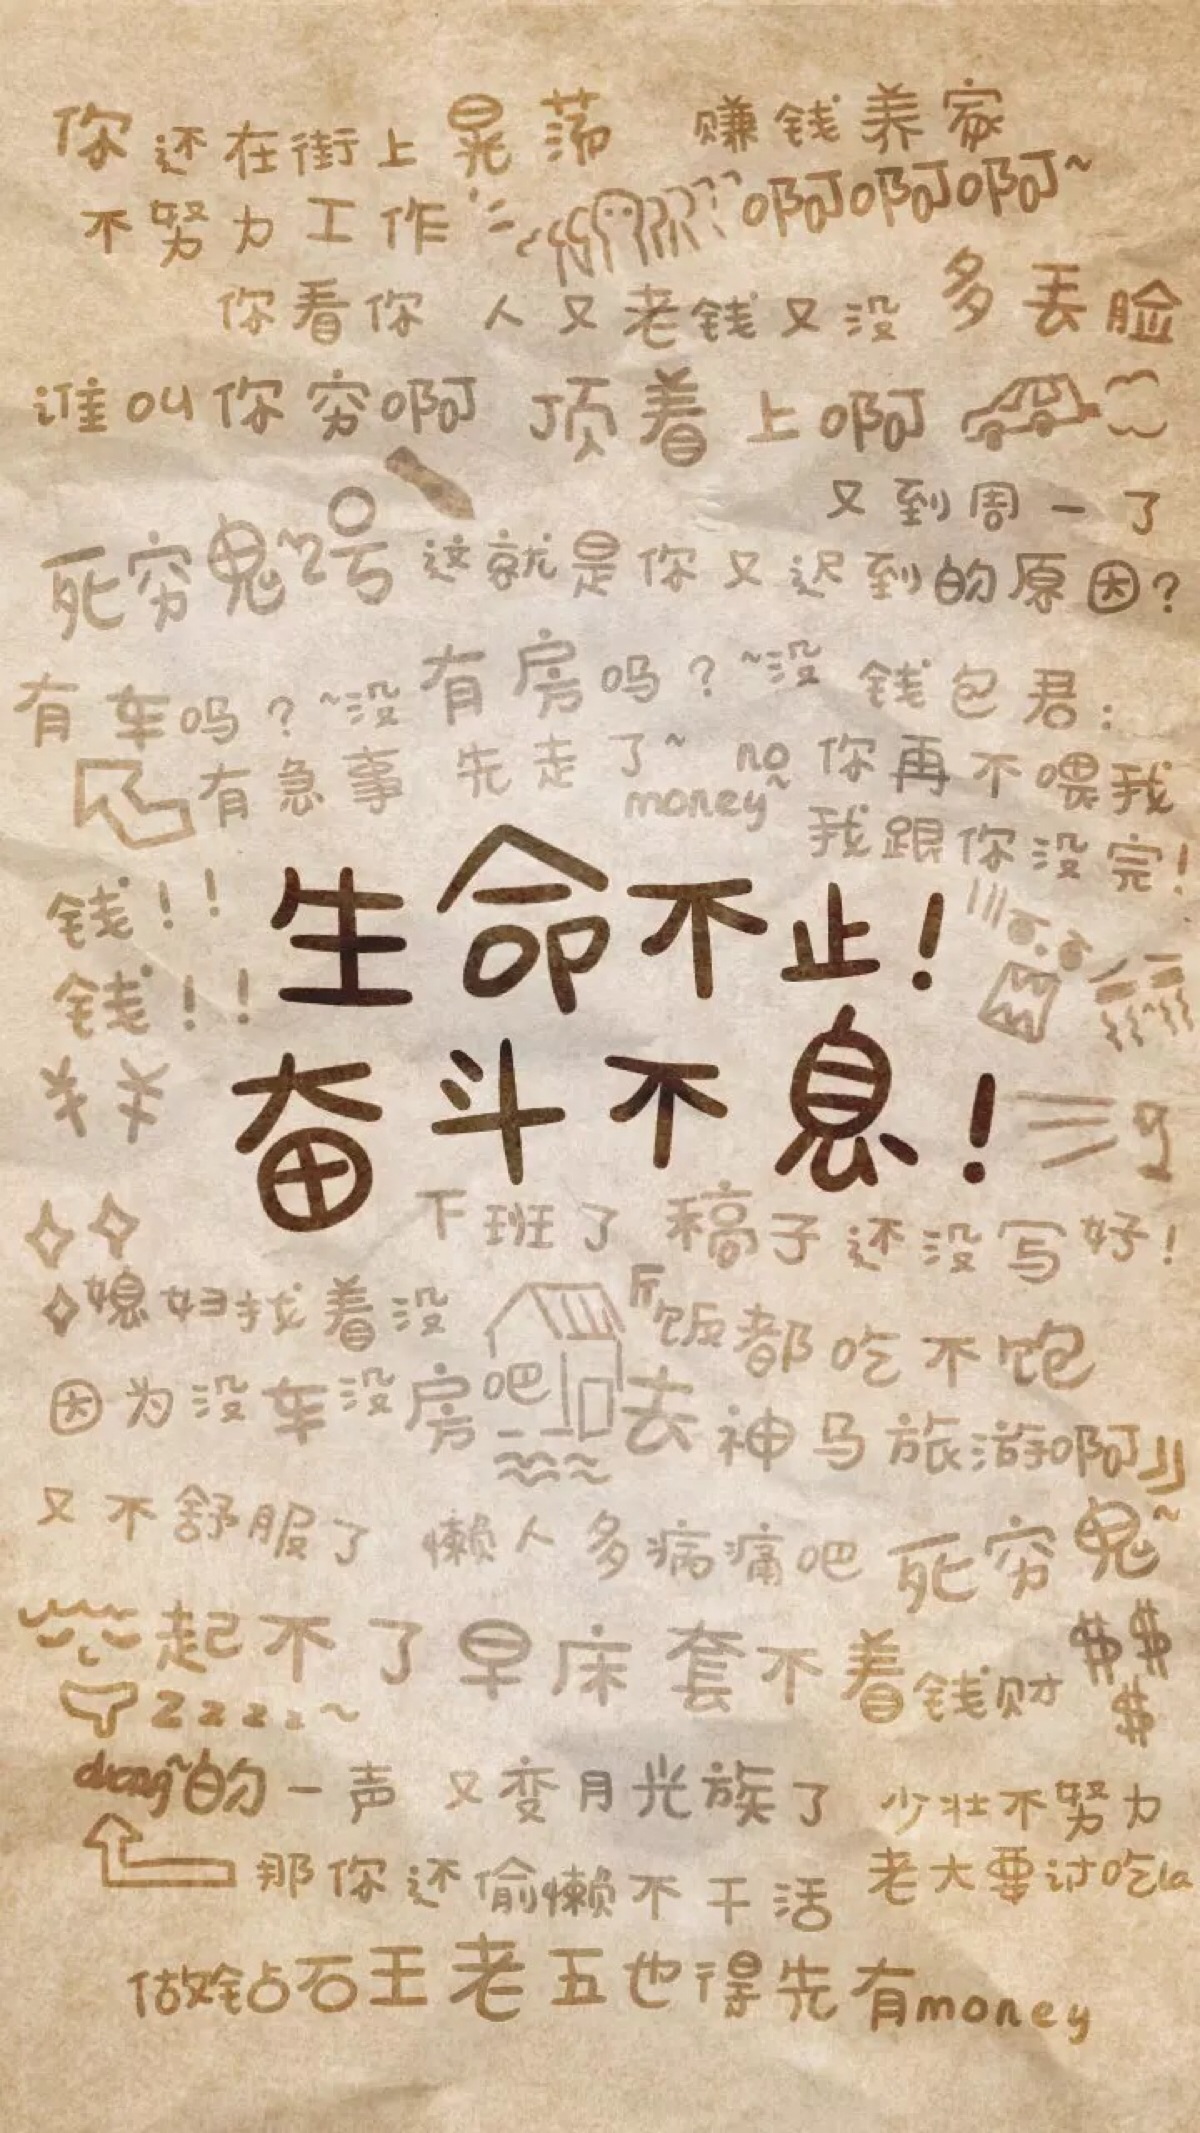 你还在街上晃荡 赚钱养家
不努力工作 啊啊啊~
你看你 人又老钱又没 多丢脸
谁叫你穷啊 顶着上啊
又到周一了
死穷鬼~2号 这就是你又迟到的原因?
有车吗?~没 有房吗?~没 钱包君:
有急事 先走了~ no money~ 你再不喂我
我跟你没完!
钱!!
生命不止!
钱!!
¥¥
奋斗不息!
下班了 稿子还没写好!
媳妇找着没 饭都吃不饱
因为没车没房吧 去神马旅游啊
又不舒服了 懒人多病痛吧 死穷鬼~
起不了早床 套不着钱财 $$
zzzz~ $
duang~的一声 又变月光族了 少壮不努力
那你还偷懒不干活 老大要讨吃la
做钻石王老五也得先有money